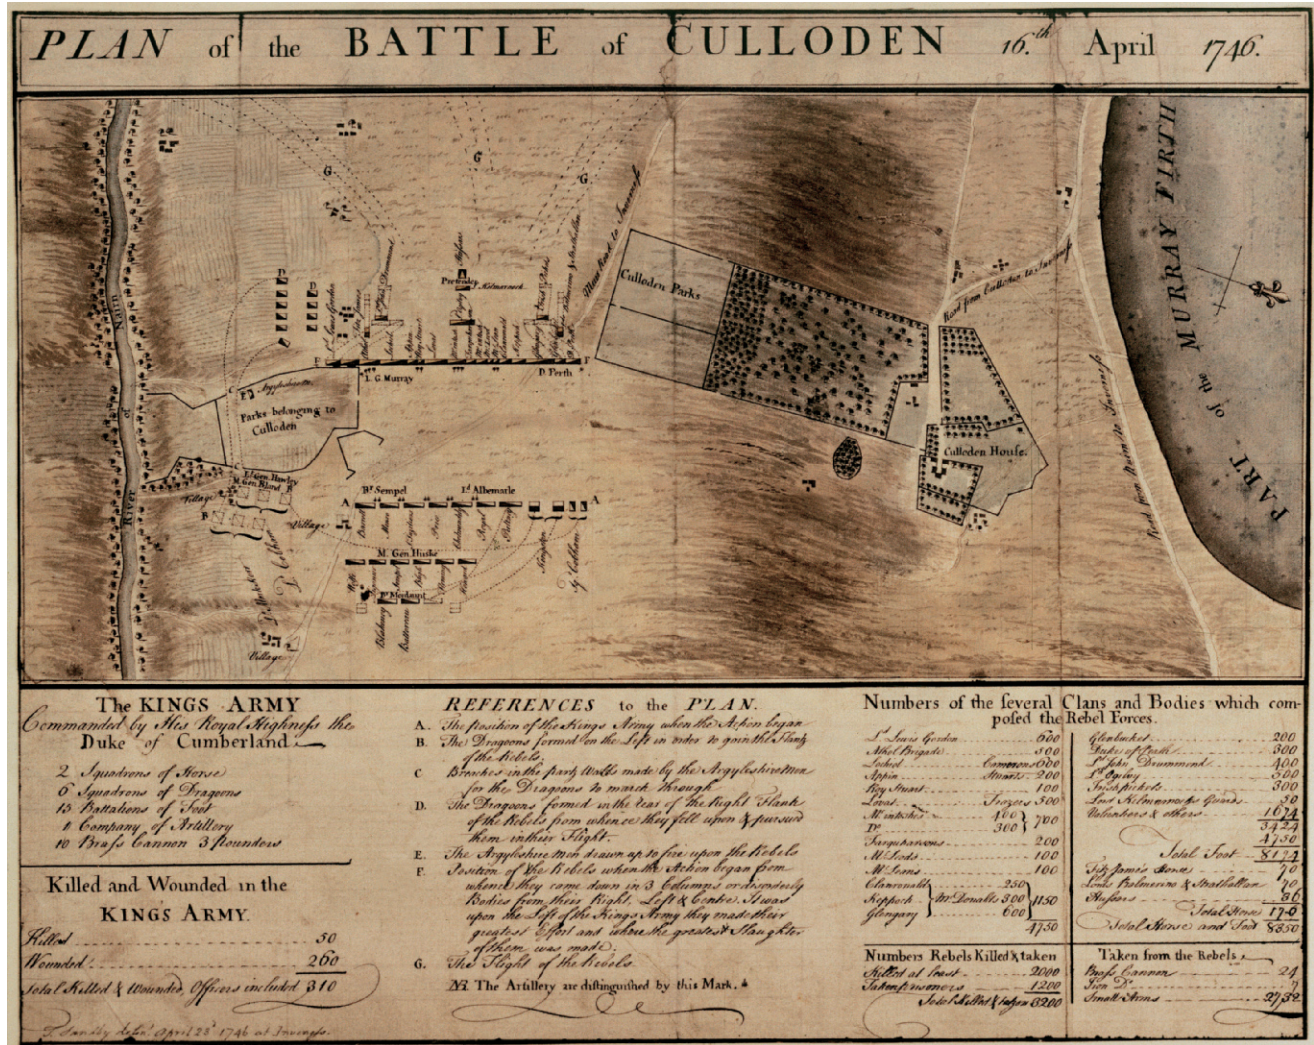 PLAN of the BATTLE of CULLODEN 16.th April 1746.
River of Nairn
G
G
G
Main Road to Inverness
MURRAY FIRTH
PART of the
Culloden Parks
Road from Culloden to Inverness
Road from Nairn to Inverness
Culloden House.
D
D
E
F
L. G. Murray
D. Perth
C
E
Argyleshire
Parks belonging to
Culloden
C
Lt. Gen. Hawley
M. Gen. Bland
B
B
Village
Village
Village
A
Br. Sempel
Ld. Albemarle
A
M. Gen. Huske
Br. Mordaunt
Kingston
Cobham
Blakeney
Battereau
The KINGS ARMY
Commanded by His Royal Highness the
Duke of Cumberland
2 Squadrons of Horse
6 Squadrons of Dragoons
15 Battalions of Foot
1 Company of Artillery
10 Brass Cannon 3 Pounders
Killed and Wounded in the
KINGS ARMY.
Killed 50
Wounded 260
Total Killed & Wounded, Officers included 310
T. Sandby delin.t April 23.d 1746 at Inverness.
REFERENCES to the PLAN.
A. The position of the Kings Army when the Action began
B. The Dragoons formed on the Left in order to gain the Flank
of the Rebels.
C Breaches in the park Walls made by the Argyleshire Men
for the Dragoons to march through
D. The Dragoons formed in the rear of the Right Flank
of the Rebels from whence they fell upon & pursued
them in their Flight.
E. The Argyleshire Men drawn up to fire upon the Rebels
F Position of the Rebels when the Action began from
whence they came down in 3 Columns or disorderly
Bodies from their Right, Left & Centre. It was
upon the Left of the Kings Army they made their
greatest Effort and where the greatest Slaughter
of them was made.
G. The Flight of the Rebels
NB. The Artillery are distinguished by this Mark.
Numbers of the several Clans and Bodies which com-
posed the Rebel Forces.
Ld. Lewis Gordon 600
Athol Brigade 500
Locheil Camerons 600
Appin Stuarts 200
Roy Stuart 100
Lovat Frazers 500
McIntoshes 400
Do. 300 700
Farquharsons 200
McLeods 100
McLeans 100
Clanronald 250
Keppoch McDonalds 300 1150
Glengary 600
4750
Glenbucket 200
Duke of Perth 300
Ld. John Drummond 400
Ld. Ogilvy 500
Irish pickets 300
Lord Kilmarnocks Guards 50
Volunteers & others 1674
3424
4750
Total Foot 8174
Fitz James's Horse 70
Lords Balmerino & Strathallan 70
Hussars 36
Total Horse 176
Total Horse and Foot 8350
Numbers Rebels Killed & taken
Killed at least 2000
Taken prisoners 1200
Total Killed & taken 3200
Taken from the Rebels
Brass Cannon 24
Iron Do. 7
Small Arms 2732